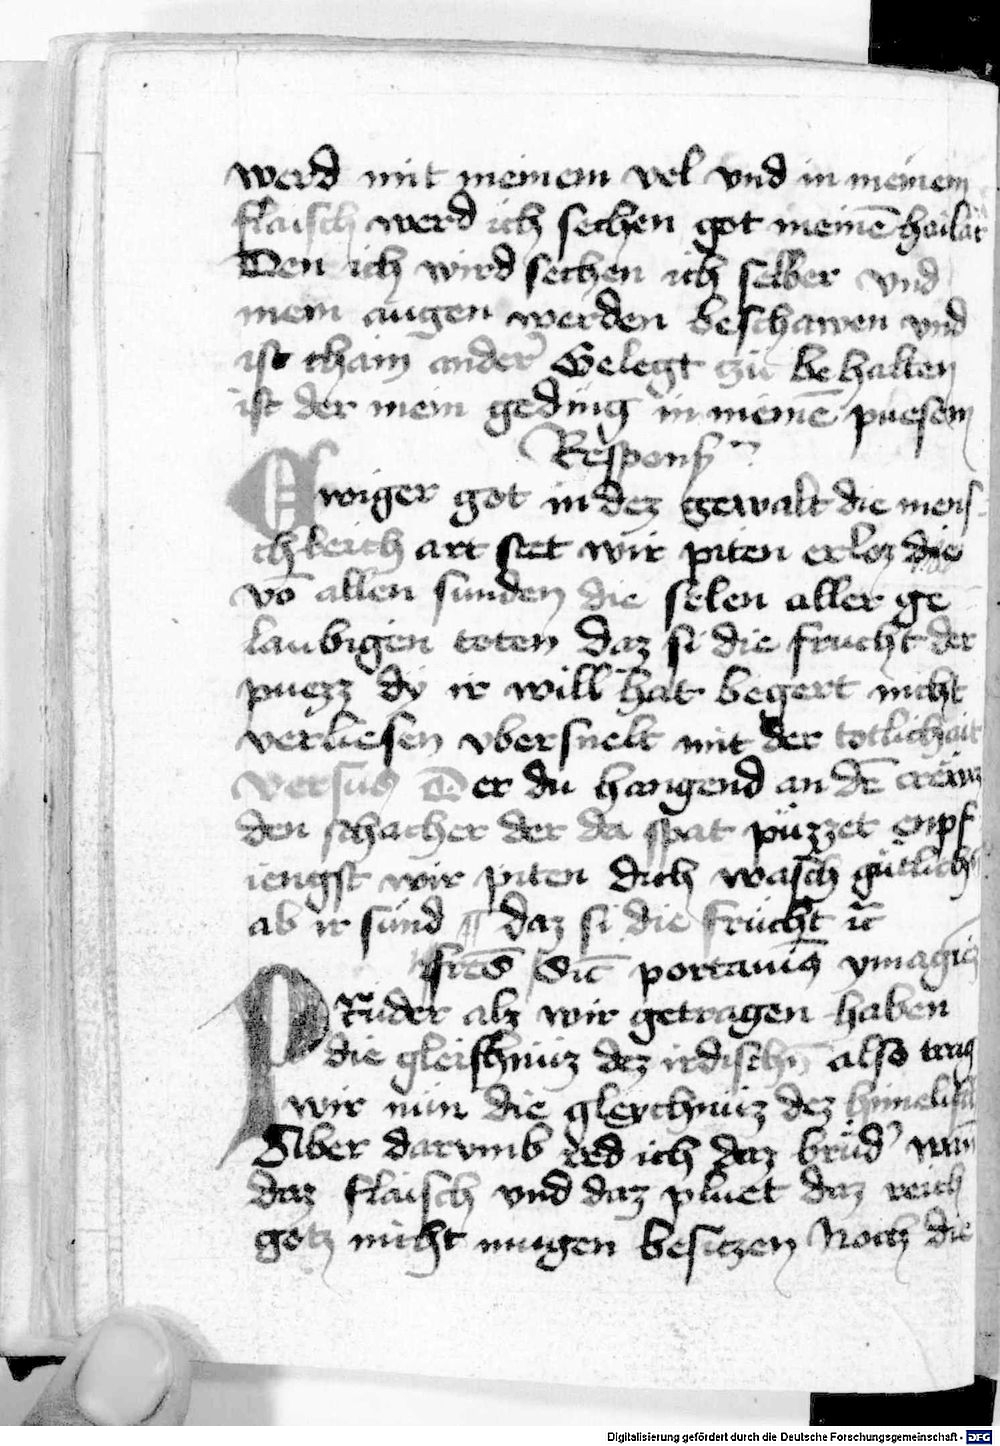 werd mit meinem vel vnd in meinem
flaisch werd ich sechen got meinē hailār
Den ich wird sechen ich selber vnd
mein augen werden beschawen vnd
ist chain ander Gelegt zu behalten
ist der mein geding in meinē puesem
Respons
Ewiger got in dez gewalt die mens
chleich art stet wir piten erloz die
vō allen sunden die selen aller ge
laubigen toten daz si die frucht der
puezz dy ir will hat begert nicht
verliesen vbersnelt mit der totlichait
versus Der du hangend an dē crëwz
den schacher der da spat püzzet enpf
iengst wir piten dich wasch gütlich
ab ir sünd ¶ daz si die frücht
portauim ymagine
Prüder alz wir getragen haben
die gleichnüz dez irdischn also trag
wir nün die gleychnüz dez himelisch
Aber darvmb red ich daz brüd wan
daz flaisch vnd daz pluet daz reich
gotz nicht mugen besitzen Noch die
Digitalisierung gefördert durch die Deutsche Forschungsgemeinschaft - DFG